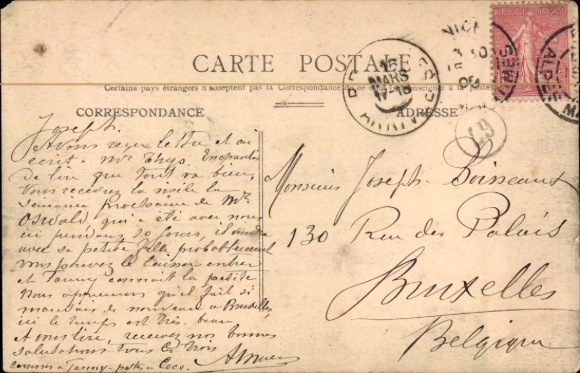 CARTE POSTALE
Certains pays étrangers n'acceptent pas la Correspondance de ce côté, se renseigner à la poste
CORRESPONDANCE
ADRESSE
Joseph.
Avons reçu lettre et on
écrit Mr Thys. Enchantés
de lire que tout va bien,
vous recevrez la visite la
semaine prochaine de Mr
Oswald qui a été avec nous
ici pendant 10 jours, il
avec sa petite fille probablement
vous pouvez le laisser entrer
et Fanny connait la petite
Nous apprenons qu'il fait si
mauvais de nouveau à Bruxelles
ici le temps est très beau
A vous lire, recevez nos bonnes
salutations tous les trois
Fanny
Coco.
Monsieur Joseph Boisseaux
130 Rue des Palais
Bruxelles
Belgique
15
MARS
17-18
67
REPUBLIQUE FRANÇAISE
NICE
ALPES